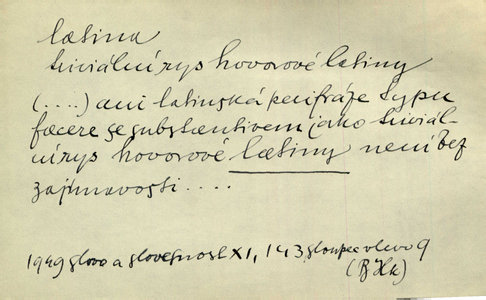 latina
triviální rys hovorové latiny
(....) ani latinská perifráze typu
facere se substantivem jako triviál-
ní rys hovorové latiny není bez
zajímavosti....
1949 Slovo a slovesnost XI, 143 sloupec vlevo 9